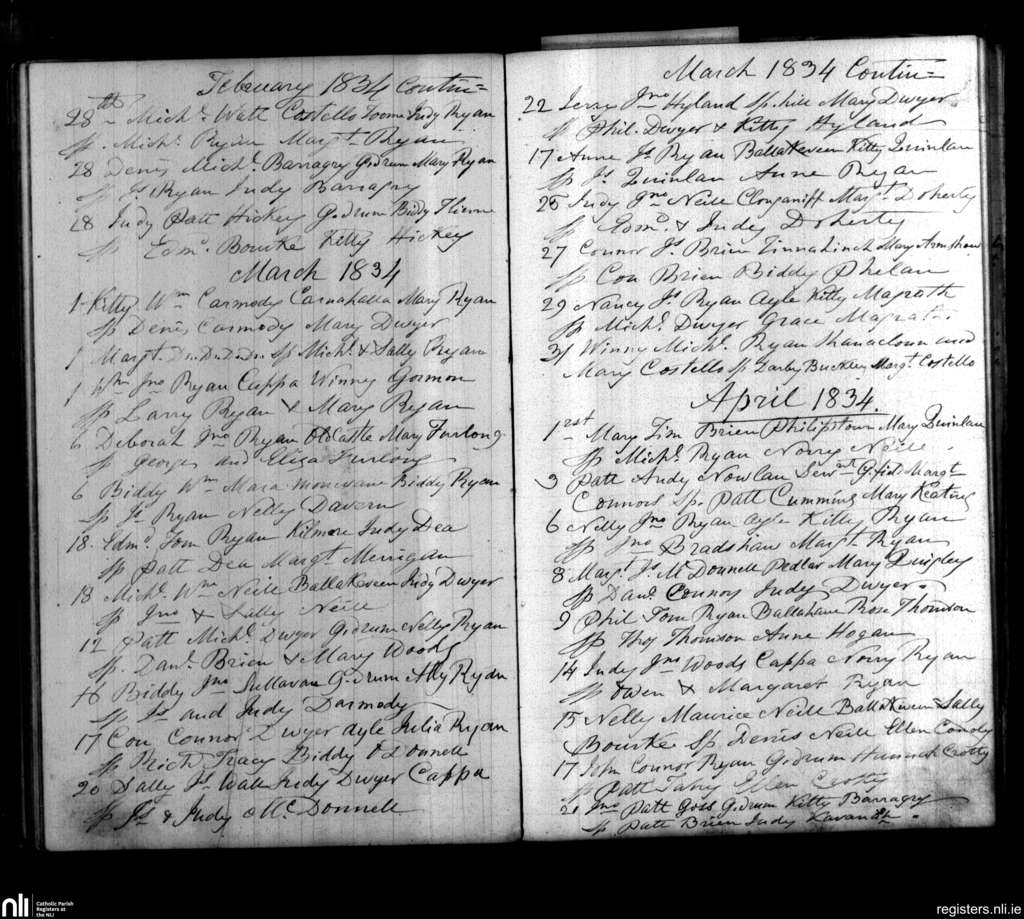 February 1834 Contin=
28th Mich.l Watt Costello Toome Judy Ryan
Sp. Mich.l Ryan Marg.t Ryan
28 Denis Mich.l Barragry Gidrum Mary Ryan
Sp Js Ryan Judy Barragry
28 Judy Patt Hickey Gidrum Biddy
Sp Edm.d Bourke Kitty Hickey
March 1834
1 Kitty Wm Carmody Carnahalla Mary Ryan
Sp Denis Carmody Mary Dwyer
1 Margt. Do Do Do Do Sp Mich.l & Sally Ryan
1 Wm Jno Ryan Cappa Winney Gorman
Sp Larry Ryan & Mary Ryan
6 Deborah Jno Ryan Oldcastle Mary Furlong
Sp George and Eliza Furlong
6 Biddy Wm Mara Biddy Ryan
Sp Js Ryan Nelly Davern
18. Edm.d Tom Ryan Kilmore Judy Dea
Sp Patt Dea Margt Merrigan
18 Mich.l Wm Neill Ballakeveen Judy Dwyer
Sp Jno & Sally Neill
12 Patt Mich.l Dwyer Gidrum Nelly Ryan
Sp. Danl. Brien & Mary Woods
16 Biddy Jno Sullavan Gidrum Ally Ryan
Sp Js and Judy Darmody
17 Con Connor Dwyer Ayle Julia Ryan
Sp Rich.d Tracy Biddy O Donnell
20 Sally Js Wall Judy Dwyer Cappa
Sp Js & Judy McDonnell
March 1834 Contin=
22 Jerry Jno Hyland Sp.hill Mary Dwyer
Sp Phil. Dwyer & Kitty Hyland
17 Anne Js Ryan Ballakeveen Kitty Quinlan
Sp Js Quinlan Anne Ryan
25 Judy Jno Neill Clonganiff Margt Doherty
Sp Edm.d & Judy Doherty
27 Connor Js Brien Tinnahinch Mary Armshaw
Sp Con Brien Biddy Phelan
29 Nancy Js Ryan Ayle Kitty Magrath
Sp Mich.l Dwyer Grace Magrath.
31 Winny Mich.l Ryan Shanacloon and
Mary Costello Sp Darby Buckley Margt. Costello
April 1834.
1rst Mary Tim Brien Philipstown Mary Quinlan
Sp Mich.l Ryan Norry Neill
3 Patt Andy Nowlan Serv.nt Margt
Connors Sp. Patt Cummins Mary Keating
6 Nelly Jno Ryan Ayle Kitty Ryan
Sp Jno Bradshaw Margt Ryan
8 Margt. Js. McDonnell Pedlar Mary Quigley
Sp Danl. Connors Judy Dwyer.
9 Phil Tom Ryan Ballahane Rose Thomson
Sp Thos Thomson Anne Hogan
14 Judy Jno Woods Cappa Norry Ryan
Sp Owen & Margaret Ryan
15 Nelly Maurice Neill Ballakeveen Sally
Bourke Sp Denis Neill Ellen Condy
17 John Connor Ryan Gidrum Hannah Crotty
Sp Patt Fahy Ellen Crotty
21 Jno Patt Goss Gidrum Kitty Barragry
Sp Patt Brien Judy Kavanah.
nli
Catholic Parish
Registers at
the NLI
registers.nli.ie